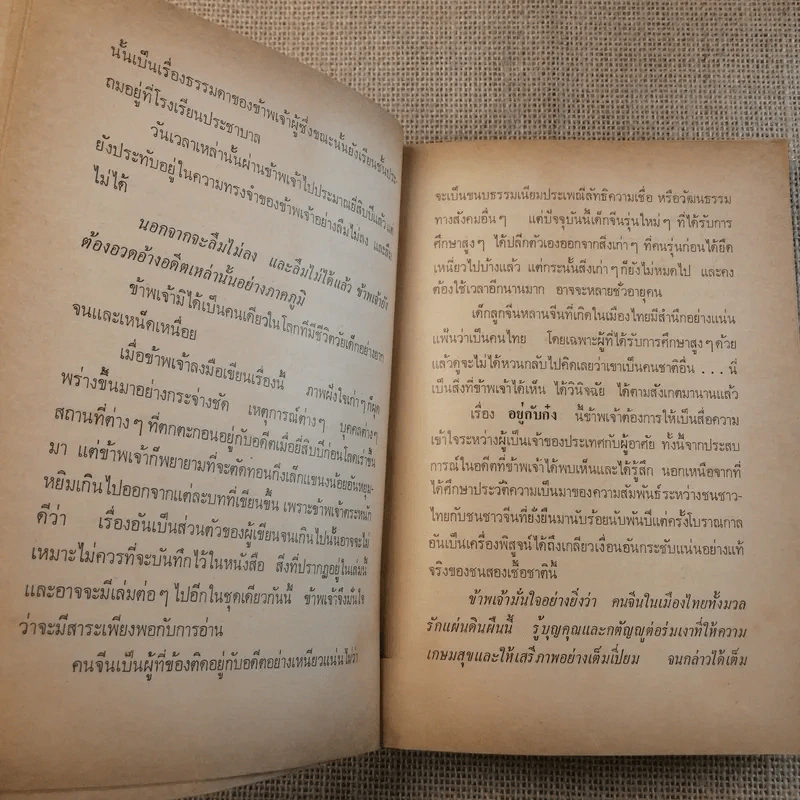 นั้นเป็นเรื่องธรรมดาของข้าพเจ้าผู้ซึ่งขณะนั้นยังเรียนชั้นประ
ถมอยู่ที่โรงเรียนประชาบาล
วันเวลาเหล่านั้นผ่านข้าพเจ้าไปประมาณยี่สิบปีแล้ว
ยังประทับอยู่ในความทรงจำของข้าพเจ้าอย่างลืมไม่ลง และลืม
ไม่ได้
นอกจากจะลืมไม่ลง และลืมไม่ได้แล้ว ข้าพเจ้ายัง
ต้องอวดอ้างอดีตเหล่านั้นอย่างภาคภูมิ
ข้าพเจ้ามิได้เป็นคนเดียวในโลกที่มีชีวิตวัยเด็กอย่าง
จนและเหน็ดเหนื่อย
เมื่อข้าพเจ้าลงมือเขียนเรื่องนี้ ภาพฝังใจเก่าๆ ก็ผุด
พร่างขึ้นมาอย่างกระจ่างชัด เหตุการณ์ต่างๆ บุคคลต่างๆ
สถานที่ต่างๆ ที่ตกตะกอนอยู่กับอดีตเมื่อยี่สิบปีก่อนโลดเร่าขึ้น
มา แต่ข้าพเจ้าก็พยายามที่จะตัดทอนกิ่งเล็กแขนงน้อยอันหยุม-
หยิมเกินไปออกจากแต่ละบทที่เขียนขึ้น เพราะข้าพเจ้าตระหนัก
ดีว่า เรื่องอันเป็นส่วนตัวของผู้เขียนจนเกินไปนั้นอาจจะไม่
เหมาะไม่ควรที่จะบันทึกไว้ในหนังสือ สิ่งที่ปรากฏอยู่ในเล่มนี้
และอาจจะมีเล่มต่อๆ ไปอีกในชุดเดียวกันนี้ ข้าพเจ้าจึงมั่นใจ
ว่าจะมีสาระเพียงพอกับการอ่าน
คนจีนเป็นผู้ที่ข้องติดอยู่กับอดีตอย่างเหนียวแน่นไม่ว่า
จะเป็นขนบธรรมเนียมประเพณีลัทธิความเชื่อ หรือวัฒนธรรม
ทางสังคมอื่นๆ แต่ปัจจุบันนี้เด็กจีนรุ่นใหม่ๆ ที่ได้รับการ
ศึกษาสูงๆ ได้ปลีกตัวเองออกจากสิ่งเก่าๆ ที่คนรุ่นก่อนได้ยึด
เหนี่ยวไปบ้างแล้ว แต่กระนั้นสิ่งเก่าๆ ก็ยังไม่หมดไป และคง
ต้องใช้เวลาอีกนานมาก อาจจะหลายชั่วอายุคน
เด็กลูกจีนหลานจีนที่เกิดในเมืองไทยมีสำนึกอย่างแน่น
แฟ้นว่าเป็นคนไทย โดยเฉพาะผู้ที่ได้รับการศึกษาสูงๆ ด้วย
แล้วดูจะไม่ได้หวนกลับไปคิดเลยว่าเขาเป็นคนชาติอื่น ... นี่
เป็นสิ่งที่ข้าพเจ้าได้เห็น ได้วินิจฉัย ได้ตามสังเกตมานานแล้ว
เรื่อง อยู่กับก๋ง นี้ข้าพเจ้าต้องการให้เป็นสื่อความ
เข้าใจระหว่างผู้เป็นเจ้าของประเทศกับผู้อาศัย ทั้งนี้จากประสบ
การณ์ในอดีตที่ข้าพเจ้าได้พบเห็นและได้รู้สึก นอกเหนือจากที่
ได้ศึกษาประวัติความเป็นมาของความสัมพันธ์ระหว่างชนชาว-
ไทยกับชนชาวจีนที่ยั่งยืนมานับร้อยนับพันปีแต่ครั้งโบราณกาล
อันเป็นเครื่องพิสูจน์ได้ถึงเกลียวเงื่อนอันกระชับแน่นอย่างแท้
จริงของชนสองเชื้อชาตินี้
ข้าพเจ้ามั่นใจอย่างยิ่งว่า คนจีนในเมืองไทยทั้งมวล
รักแผ่นดินผืนนี้ รู้บุญคุณและกตัญญูต่อร่มเงาที่ให้ความ
เกษมสุขและให้เสรีภาพอย่างเต็มเปี่ยม จนกล่าวได้เต็ม